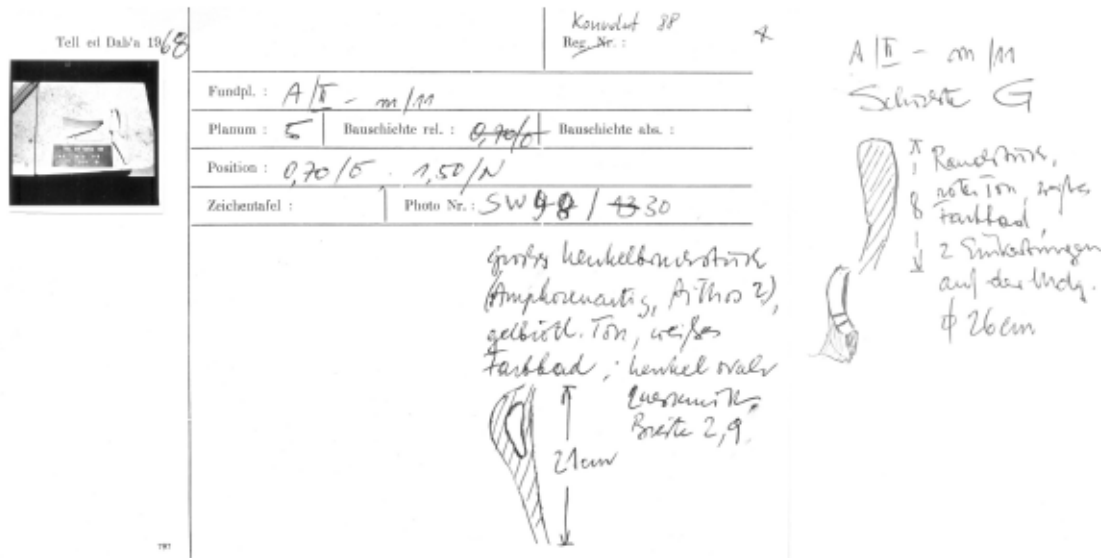 Tell ed Dab'a 1968
Konvolut 88
Reg. Nr. :
Fundpl. : A/II - m/11
Planum : 5 Bauschichte rel. : 0,70/O Bauschichte abs. :
Position : 0,70/O . 1,50/N
Zeichentafel : Photo Nr. : SW 98 / 43 30
großes Henkelbruchstück
(Amphorenartig, Pithos ?),
gelbrötl. Ton, weißes
Farbbad ; Henkel ovaler
Querschnitt,
Breite 2,9.
21cm
A/II - m/11
Schichte G
Randstück,
roter Ton, weißes
Farbbad,
2 Einkerbungen
auf der Mdg.
ϕ 26cm
8
797